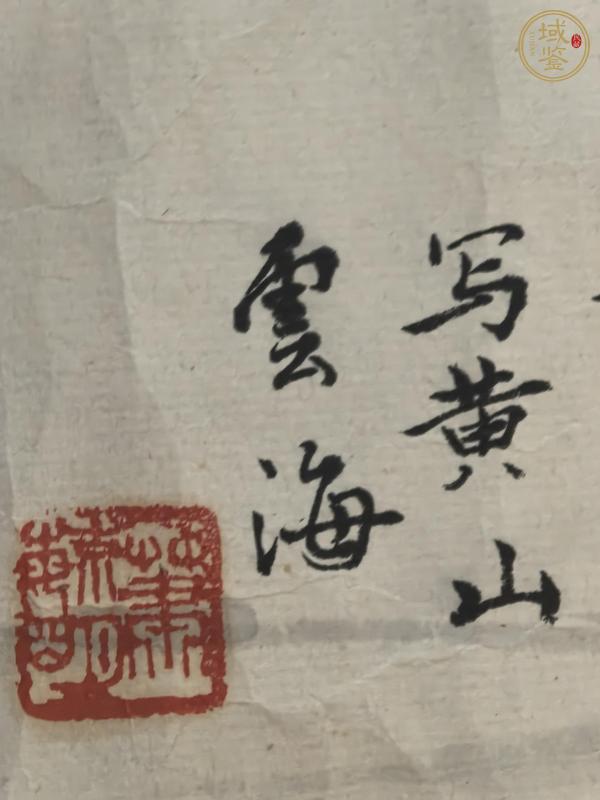 写黄山
雲海
域鉴